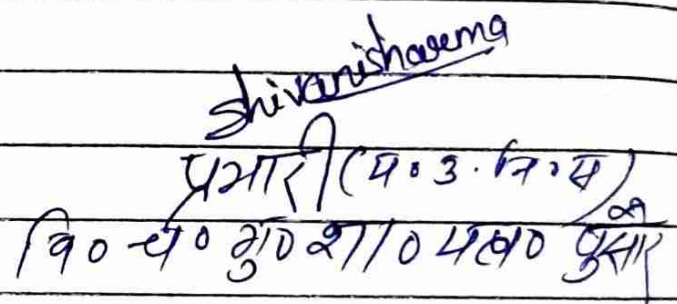 Shivanisharma
प्रभारी (म०उ.नि०स)
वि० चं० गु० शा० महा० पुसौर